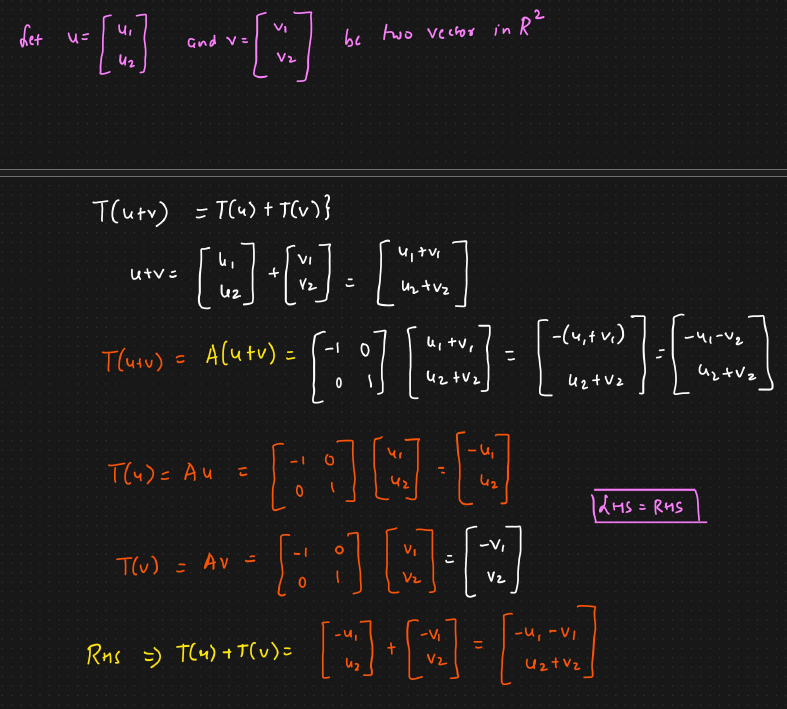 Let u = [u₁ u₂] and v = [v₁ v₂] be two vector in R²
T(u+v) = T(u) + T(v)}
u+v = [u₁ u₂] + [v₁ v₂] = [u₁+v₁ u₂+v₂]
T(u+v) = A(u+v) = [-1 0 0 1] [u₁+v₁ u₂+v₂] = [-(u₁+v₁) u₂+v₂] = [-u₁-v₂ u₂+v₂]
T(u) = Au = [-1 0 0 1] [u₁ u₂] = [-u₁ u₂]
LHS = RHS
T(v) = Av = [-1 0 0 1] [v₁ v₂] = [-v₁ v₂]
RHS ⇒ T(u) + T(v) = [-u₁ u₂] + [-v₁ v₂] = [-u₁-v₁ u₂+v₂]